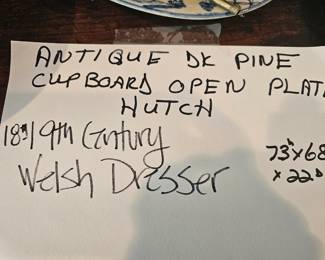 ANTIQUE DK PINE
CUPBOARD OPEN PLAT
HUTCH
18th/9th Century
Welsh Dresser
73"x68
x 22"